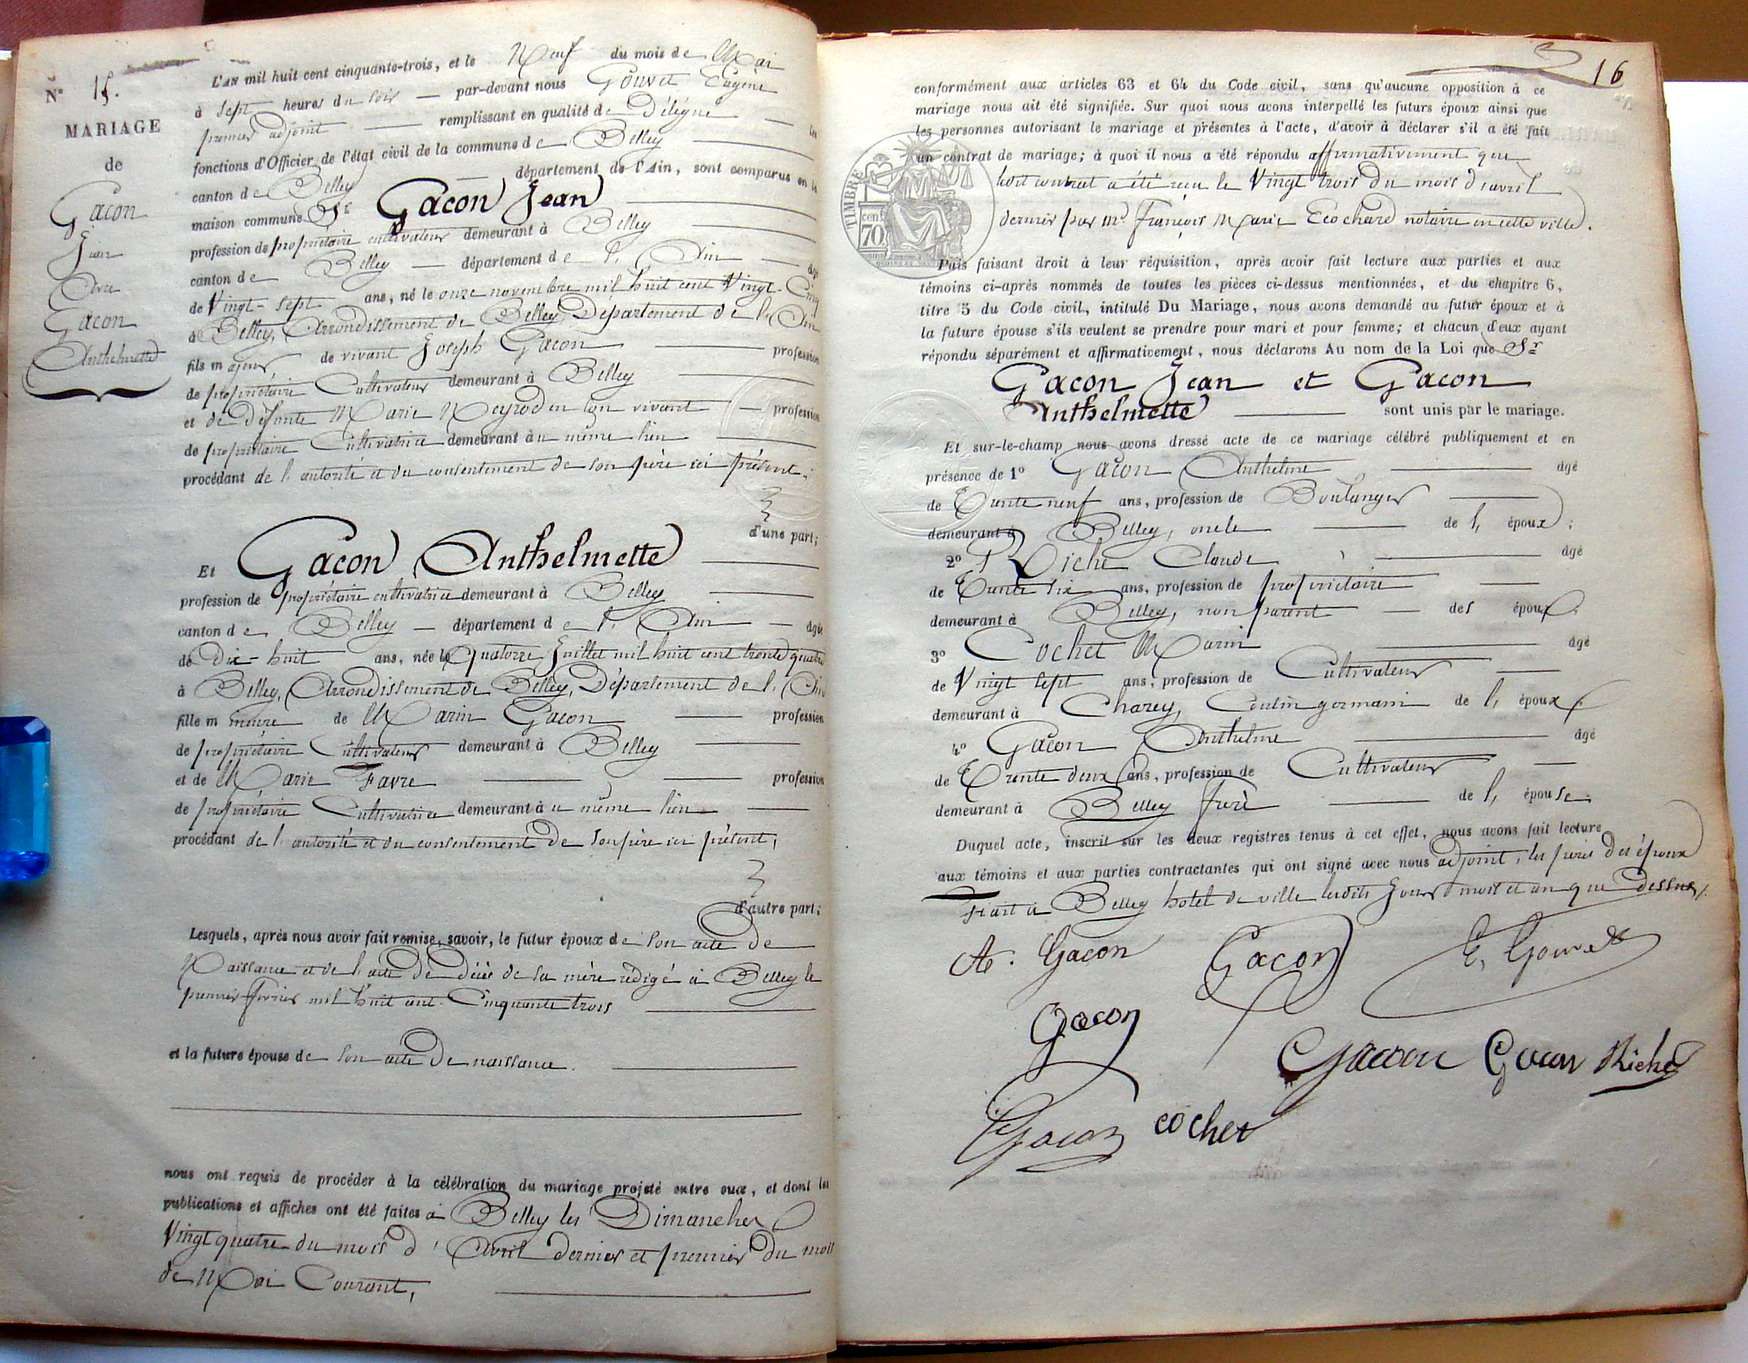 N° 15.
MARIAGE
de
Gacon
Jean
Avec
Gacon
Anthelmette
L'AN mil huit cent cinquante-trois, et le Neuf du mois de Mai
à sept heures du soir par-devant nous Gouvet Eugène
premier adjoint remplissant en qualité de Délégué les
fonctions d'Officier de l'état civil de la commune de Belley
canton de Belley département de l'Ain, sont comparus en la
maison commune Sr Gacon Jean
profession de propriétaire cultivateur demeurant à Belley
canton de Belley département de l'Ain âgé
de Vingt-sept ans, né le onze novembre mil huit cent Vingt-Cinq
à Belley, Arrondissement de Belley, Département de l'Ain
fils majeur de vivant Joseph Gacon profession
de propriétaire Cultivateur demeurant à Belley
et de défunte Marie Meyrod en son vivant profession
de propriétaire Cultivatrice demeurant au même lieu
procédant de l'autorité et du consentement de son père ici présent.
d'une part;
Et Gacon Anthelmette
profession de propriétaire cultivatrice demeurant à Belley
canton de Belley département de l'Ain âgée
de Dix-huit ans, née le Quatorze Juillet mil huit cent trente quatre
à Belley, Arrondissement de Belley, Département de l'Ain
fille mineure de Marin Gacon profession
de propriétaire Cultivateur demeurant à Belley
et de Marie Favre profession
de propriétaire Cultivatrice demeurant au même lieu
procédant de l'autorité et du consentement de son père ici présent,
d'autre part;
Lesquels, après nous avoir fait remise, savoir, le futur époux de son acte de
Naissance et de l'acte de décès de sa mère rédigé à Belley le
premier février mil huit cent Cinquante trois
et la future épouse de son acte de naissance.
nous ont requis de procéder à la célébration du mariage projeté entre eux, et dont les
publications et affiches ont été faites à Belley les Dimanches
Vingt quatre du mois d'Avril dernier et premier du mois
de Mai Courant,
16
conformément aux articles 63 et 64 du Code civil, sans qu'aucune opposition à ce
mariage nous ait été signifiée. Sur quoi nous avons interpellé les futurs époux ainsi que
les personnes autorisant le mariage et présentes à l'acte, d'avoir à déclarer s'il a été fait
un contrat de mariage; à quoi il nous a été répondu affirmativement que
TIMBRE
cent 70
contrat a été reçu le Vingt trois du mois d'avril
dernier par Me François Marie Ecochard notaire en cette ville.
Puis faisant droit à leur réquisition, après avoir fait lecture aux parties et aux
témoins ci-après nommés de toutes les pièces ci-dessus mentionnées, et du chapitre 6,
titre 5 du Code civil, intitulé Du Mariage, nous avons demandé au futur époux et à
la future épouse s'ils veulent se prendre pour mari et pour femme; et chacun d'eux ayant
répondu séparément et affirmativement, nous déclarons Au nom de la Loi que Sr
Gacon Jean et Gacon
Anthelmette sont unis par le mariage.
Et sur-le-champ nous avons dressé acte de ce mariage célébré publiquement et en
présence de 1° Gacon Anthelme âgé
de Trente neuf ans, profession de Boulanger
demeurant à Belley, oncle de l' époux;
2° Riche Claude âgé
de Trente six ans, profession de propriétaire
demeurant à Belley, non parent des époux.
3° Cochet Marin âgé
de Vingt sept ans, profession de Cultivateur
demeurant à Charey, Cousin germain de l' époux.
4° Gacon Anthelme âgé
de Trente deux ans, profession de Cultivateur
demeurant à Belley frère de l' épouse.
Duquel acte, inscrit sur les deux registres tenus à cet effet, nous avons fait lecture
aux témoins et aux parties contractantes qui ont signé avec nous adjoint, les pères des époux
Fait à Belley hotel de ville lesdits Jour mois et an que dessus.
A. Gacon Gacon E. Gouvet
Gacon
Gacon Gacon Riche
Gacon cochet